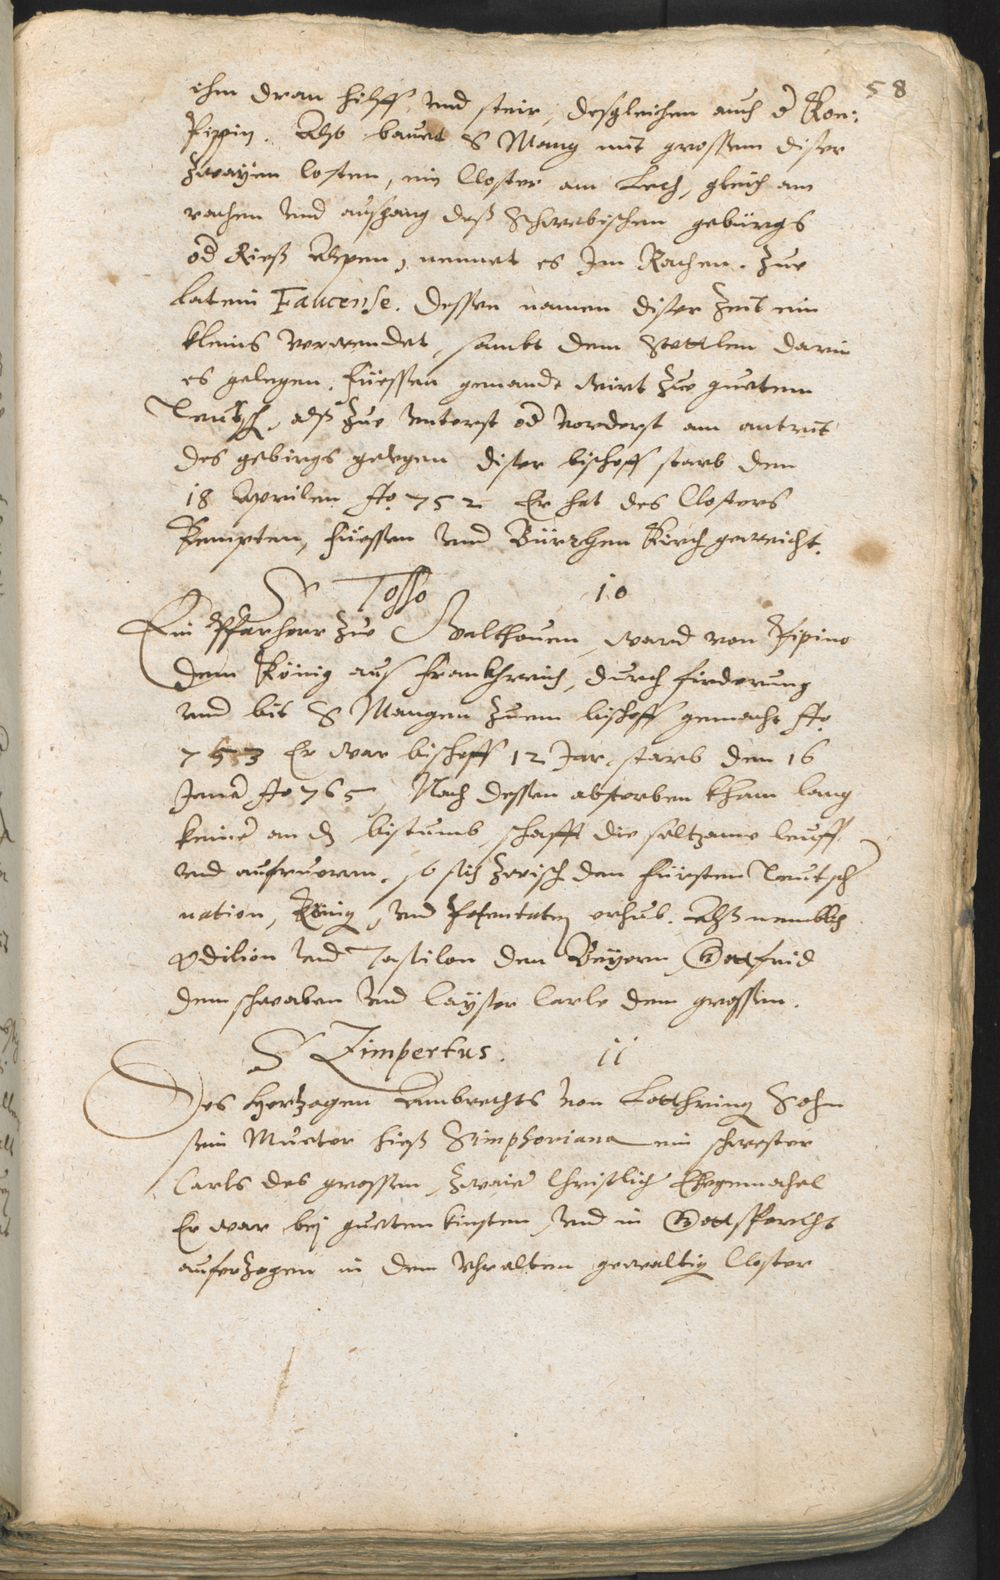 58
ihm dran hilff und steür, desgleichen auch d Kön:
Pipin. Also bauet S Mang mit grossem diser
zwayen costen, ein Closter am Lech, gleich am
rachen und ausgang deß Schwebischen gebürgs
od Rieß Alpen, nennet es Im Rachen. Zue
Latein Faucense. dessen namen diser Zeit ein
kleins verwendet, sambt dem Stettlen darin
es gelegen. Füessen genandt wirt zue guetem
Teutsch, als zue unterst od vorderst am antritt
des gebirgs gelegen diser bischoff starb den
18 Aprilen Ao 752 Er hat des Closters
Kempten, Füessen und Kirch geweicht.
S Tosso 10
Ein Pfarherr zue Walthoven, ward von Pipino
dem König aus Frankhreich, durch firderung
und bit S Mangen zuem bischoff gemacht Ao
753 Er war bischoff 12 Jar, starb den 16
Jener Ao 765, Nach dessen absterben kham lang
keiner an dz bistumb, schafft die seltzame leuff
und aufruoren, so sich zwisch den Fürsten Teutscher
nation, König, und Potentaten erhub. Alß nemblich
Odilion und Tassilon den Beyern, Gottfrid
dem schwaben und Cayser Carle dem grossen.
S Zimpertus. 11
Des Hertzogen Lambrechts von Lotthring Sohn
sein Muetter hieß Simphoriana ein schwester
Carls des grossen, zwaier Christlicher Ehegemachel
Er war bey gueten kinsten, und in Gottsforcht
auferzogen in dem uhralten gewaltig Closter